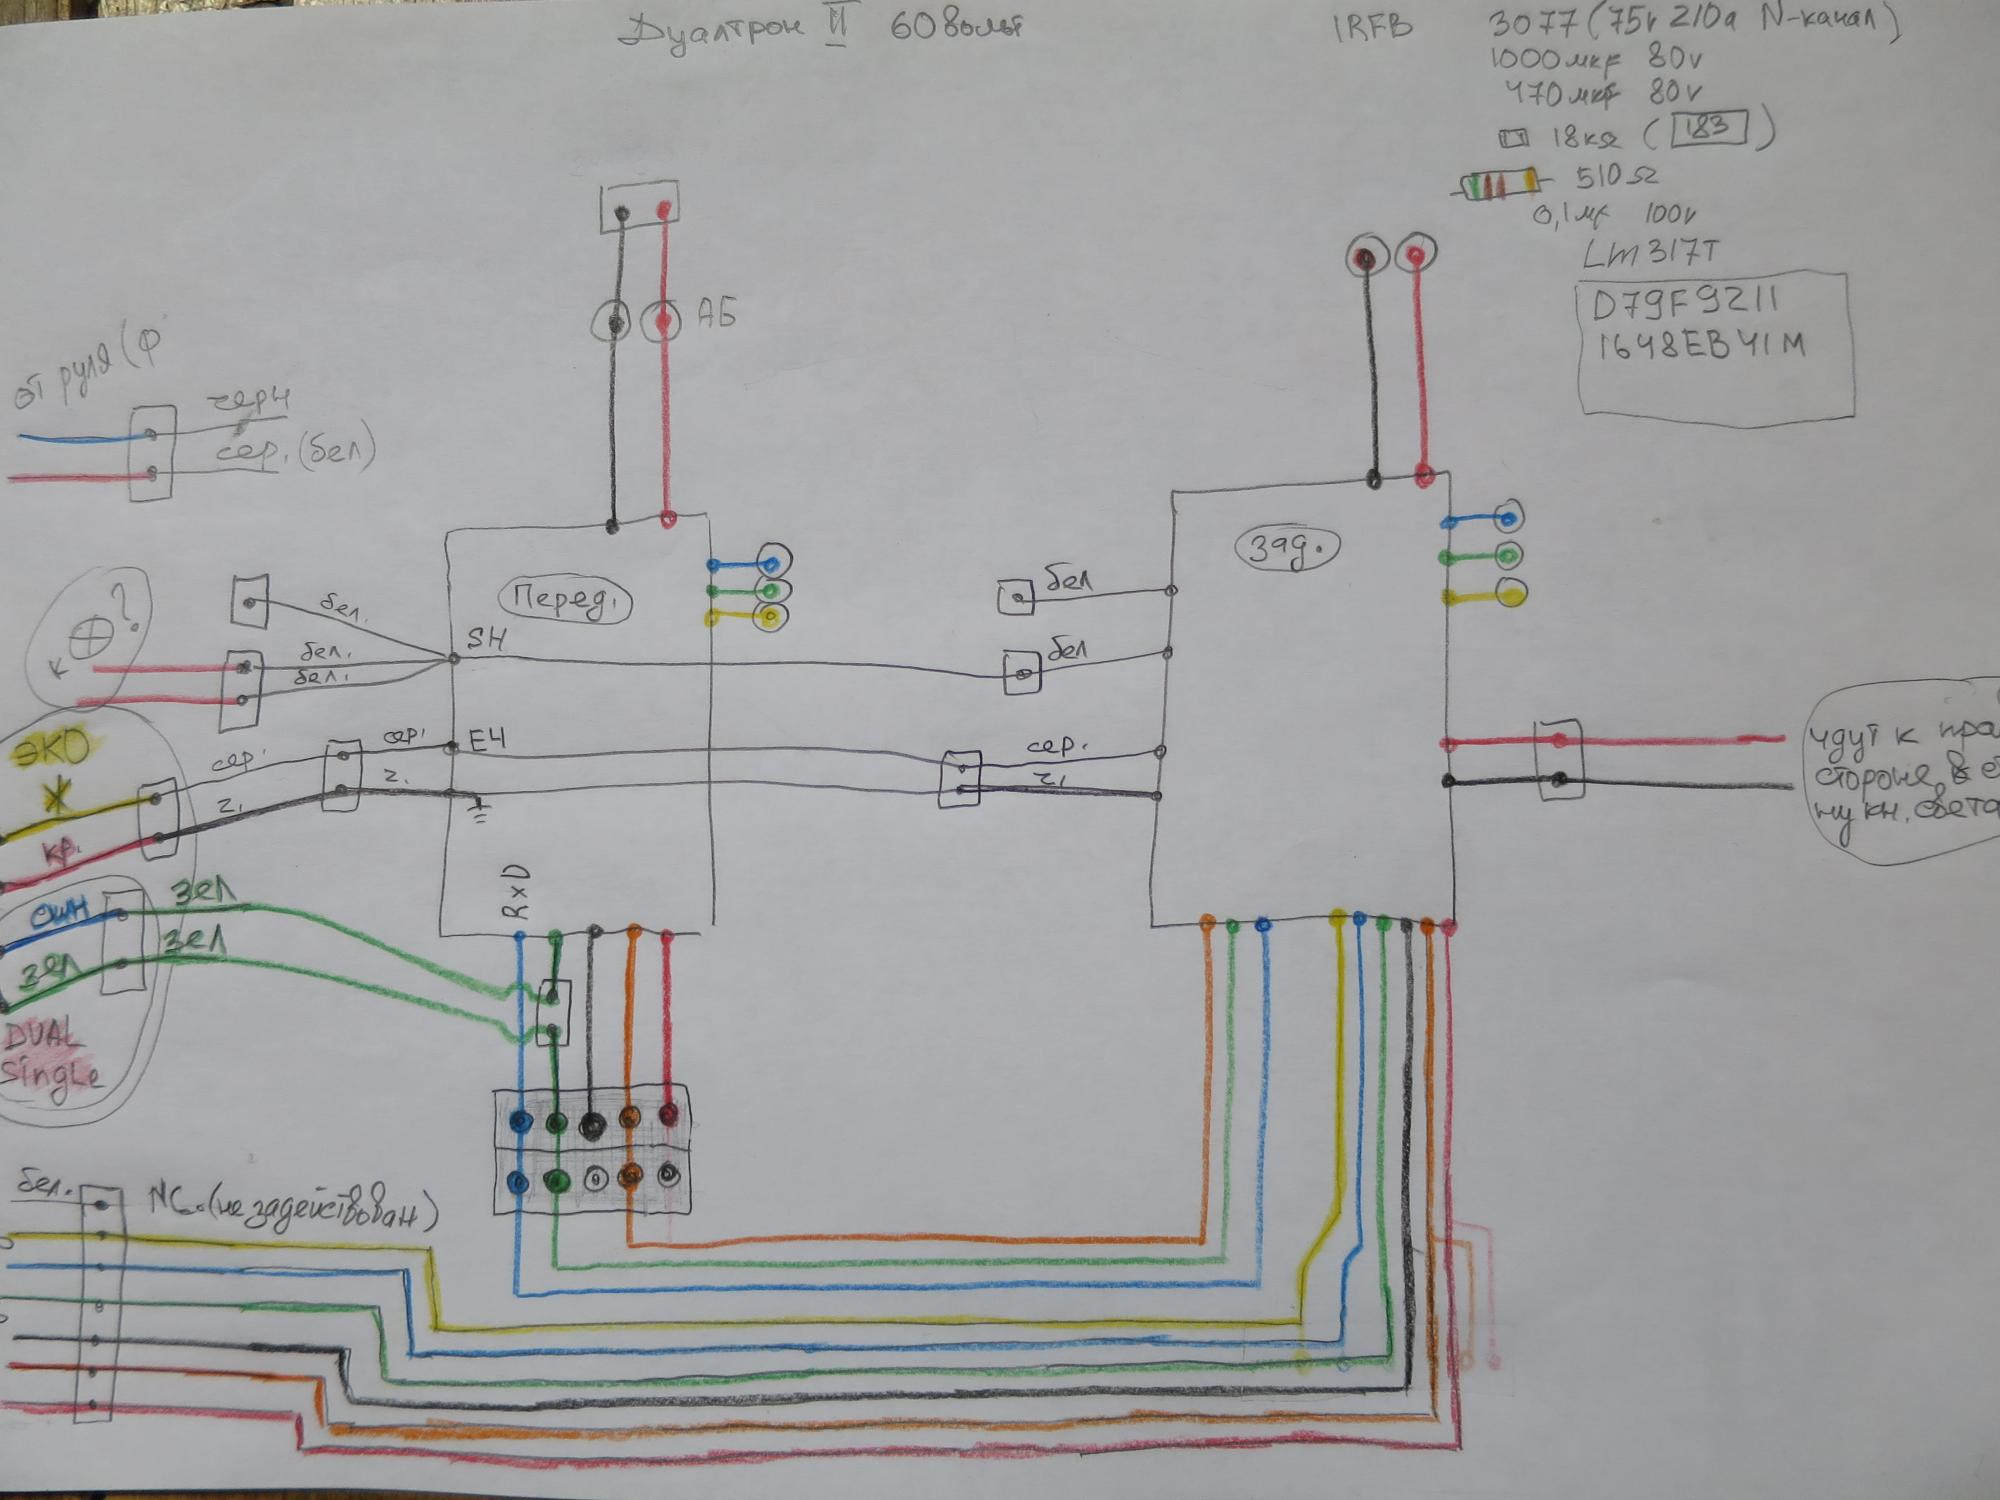 Дуалтрон II 60вольт
IRFB 3077 (75v 210a N-канал)
1000мкF 80v
470мкF 80v
18кΩ (183)
510Ω
0,1мк 100v
Lm317T
D79F9211
1648EB41M
АБ
от руля (Ф
черн
сер. (бел)
Перед.
Зад.
?
бел.
бел.
бел.
SH
бел
бел
ЭКО
сер.
сер.
E4
сер.
ч.
ч.
ч.
кр.
идут к пра
стороне, в
ну кн. света
RxD
син
зел
зел
зел
DUAL
Single
бел.
NC. (не задействован)